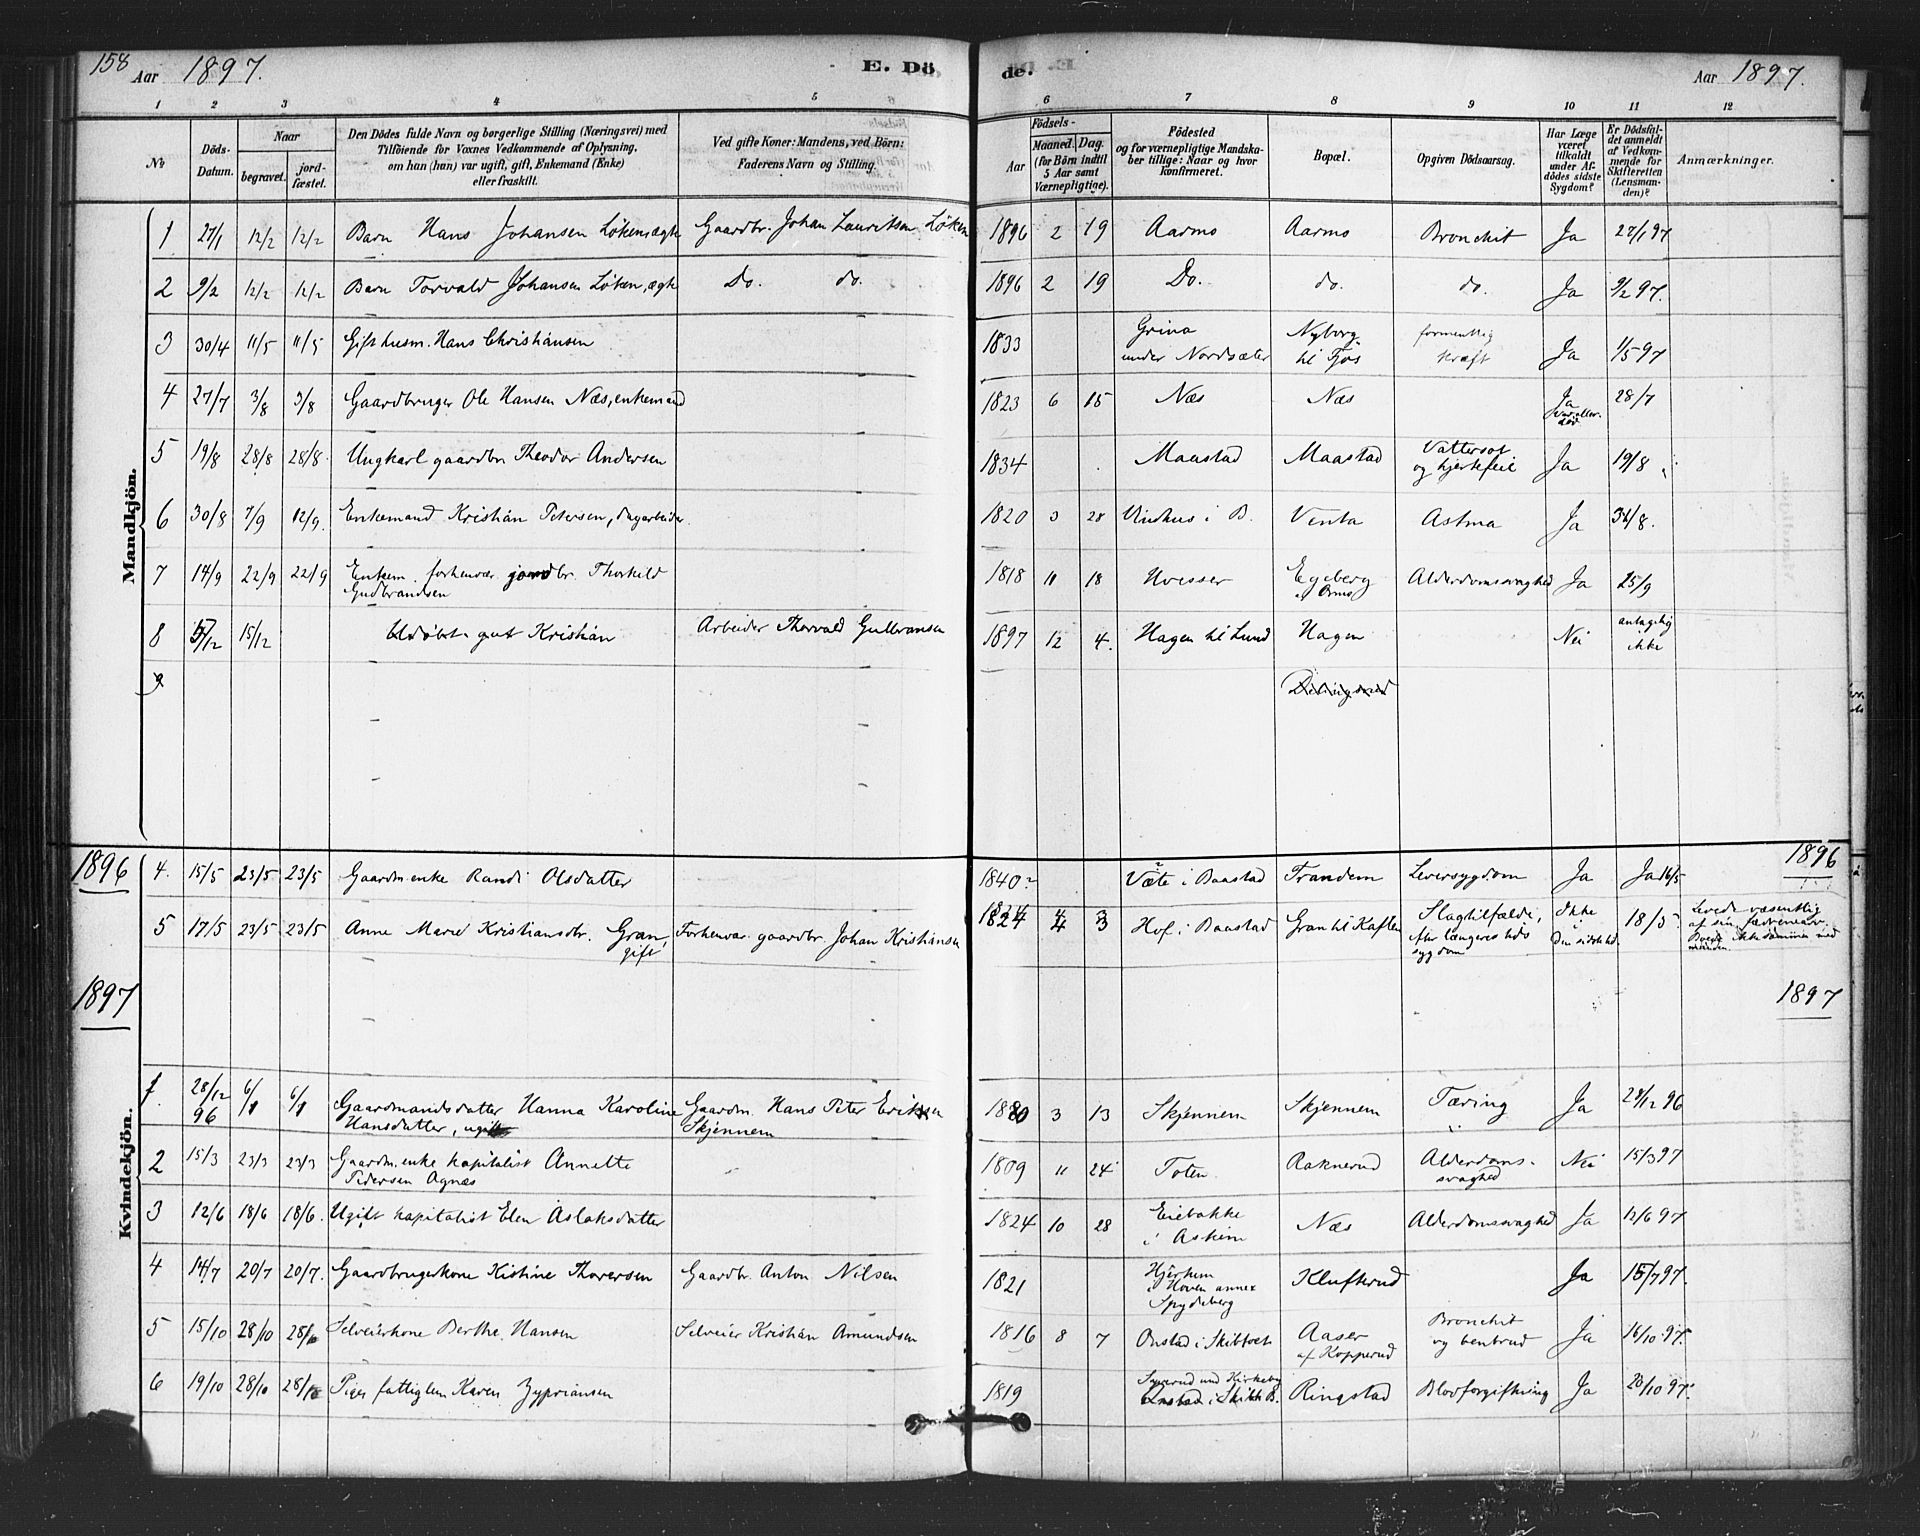 158 Aar 1897. E. Dö de. Aar 1897.
1 2 3 4 5 6 7 8 9 10 11 12
No
Döds-Datum.
Naar
begravet.
jord-fæstet.
Den Dödes fulde Navn og borgerlige Stilling (Næringsvei) med
Tilföiende for Voxnes Vedkommende af Oplysning,
om han (hun) var ugift, gift, Enkemand (Enke)
eller fraskilt.
Ved gifte Koner: Mandens, ved Börn:
Faderens Navn og Stilling.
Födsels-
Aar
Maaned. Dag.
(for Börn indtil
5 Aar samt
Værnepligtige).
Födested
og for værnepligtige Mandska-
ber tillige: Naar og hvor
konfirmeret.
Bopæl.
Opgiven Dödsaarsag.
Har Læge
været
tilkaldt
under Af-
dödes sidste
Sygdom?
Er Dödsfal-
det anmeldt
af Vedkom-
mende for
Skifteretten
(Lensman-
den)?
Anmærkninger.
Mandkjön.
1 27/1 12/2 12/2 Barn Hans Johansen Löken, ægte Gaardbr. Johan Lauritsen Löken 1896 2 19 Aarmo Aarmo Bronchit Ja 27/1 97
2 9/2 12/2 12/2 Barn Torvald Johansen Löken, ægte Do. do. 1896 2 19 Do. do. do. Ja 9/2 97.
3 30/4 11/5 11/5 Gift husm. Hans Christiansen 1833 Grina
under Nordsæter Nyborg
til Fjøs formentlig
kræft Ja 1/5 97
4 27/7 3/8 3/8 Gaardbruger Ole Hansen Næs, enkemand 1823 6 15 Næs Næs Ja
28/7
5 19/8 28/8 28/8. Ungkarl gaardbr. Theodor Andersen 1834 Maastad Maastad Vattersot
og hjertefeil Ja 19/8
6 30/8 7/9 12/9. Enkemand Kristian Petersen, dagarbeider 1820 3 28 Vindhus i B. Venta Astma Ja 31/8.
7 14/9 22/9 22/9 Enkem. forhenvær. gaardbr. Thorkild
Gudbrandsen 1818 11 18 Hvesser Egeberg
af Ormo Alderdomssvaghed Ja 25/9
8 5/12 15/12 Udöbt gut Kristian Arbeider Thorvald Gulbransen 1897 12 4. Hagen til Lund Hagen Nei antagelig
ikke
9
1896 1896
4. 15/5 23/5 23/5 Gaardm.enke Randi Olsdatter 1840? Væte i Baastad Trandem Leversygdom Ja Ja 16/5
5 17/5 23/5 23/5 Anne Marie Kristiansdtr. Gran,
gift Forhenvær. gaardbr. Johan Kristiansen 1824 4 3 Hof i Baastad Gran til Kaften Slagtilfælde,
efter længeres tids
sygdom Ikke
i
den sidste tid. 18/5 Levede væsentlig
af sin
Boede ikke sammen med
manden.
1897 1897
Kvindekjön.
1. 28/12
96 6/1 6/1 Gaardmandsdatter Hanna Karoline
Hansdatter, ugift Gaardm. Hans Peter Eriksen
Skjennem 1880 3 13 Skjennem Skjennem Tæring Ja 29/12 96
2 15/3 23/3 23/3 Gaardm.enke kapitalist Annette
Pedersen Agnæs 1809 11 24 Toten Raknerud Alderdoms-
svaghed Nei 15/3 97
3 12/6 18/6 18/6. Ugift kapitalist Elen Aslaksdatter 1824 10 28 Eiebakke
i Askim Næs Alderdomssvaghed Ja 12/6 97
4 14/7 20/7 20/7. Gaardbrugerkone Kistine Thoresen Gaardbr. Anton Nilsen 1821 Hjerkem
i Hoven annex
Spydeberg Klufterud Ja 15/7 97.
5 15/10 28/10 28/10 Selveierkone Berthe Hansen Selveier Kristian Amundsen 1816 8 7 Onstad i Skibtvet Aaser
af Kopperud Bronchit
og benbrud Ja 16/10 97.
6 19/10 28/10 28/10 Pige fattiglem Karen Zypriansen 1819 i Skibtv. Ringstad Blodforgiftning Ja 20/10 97.